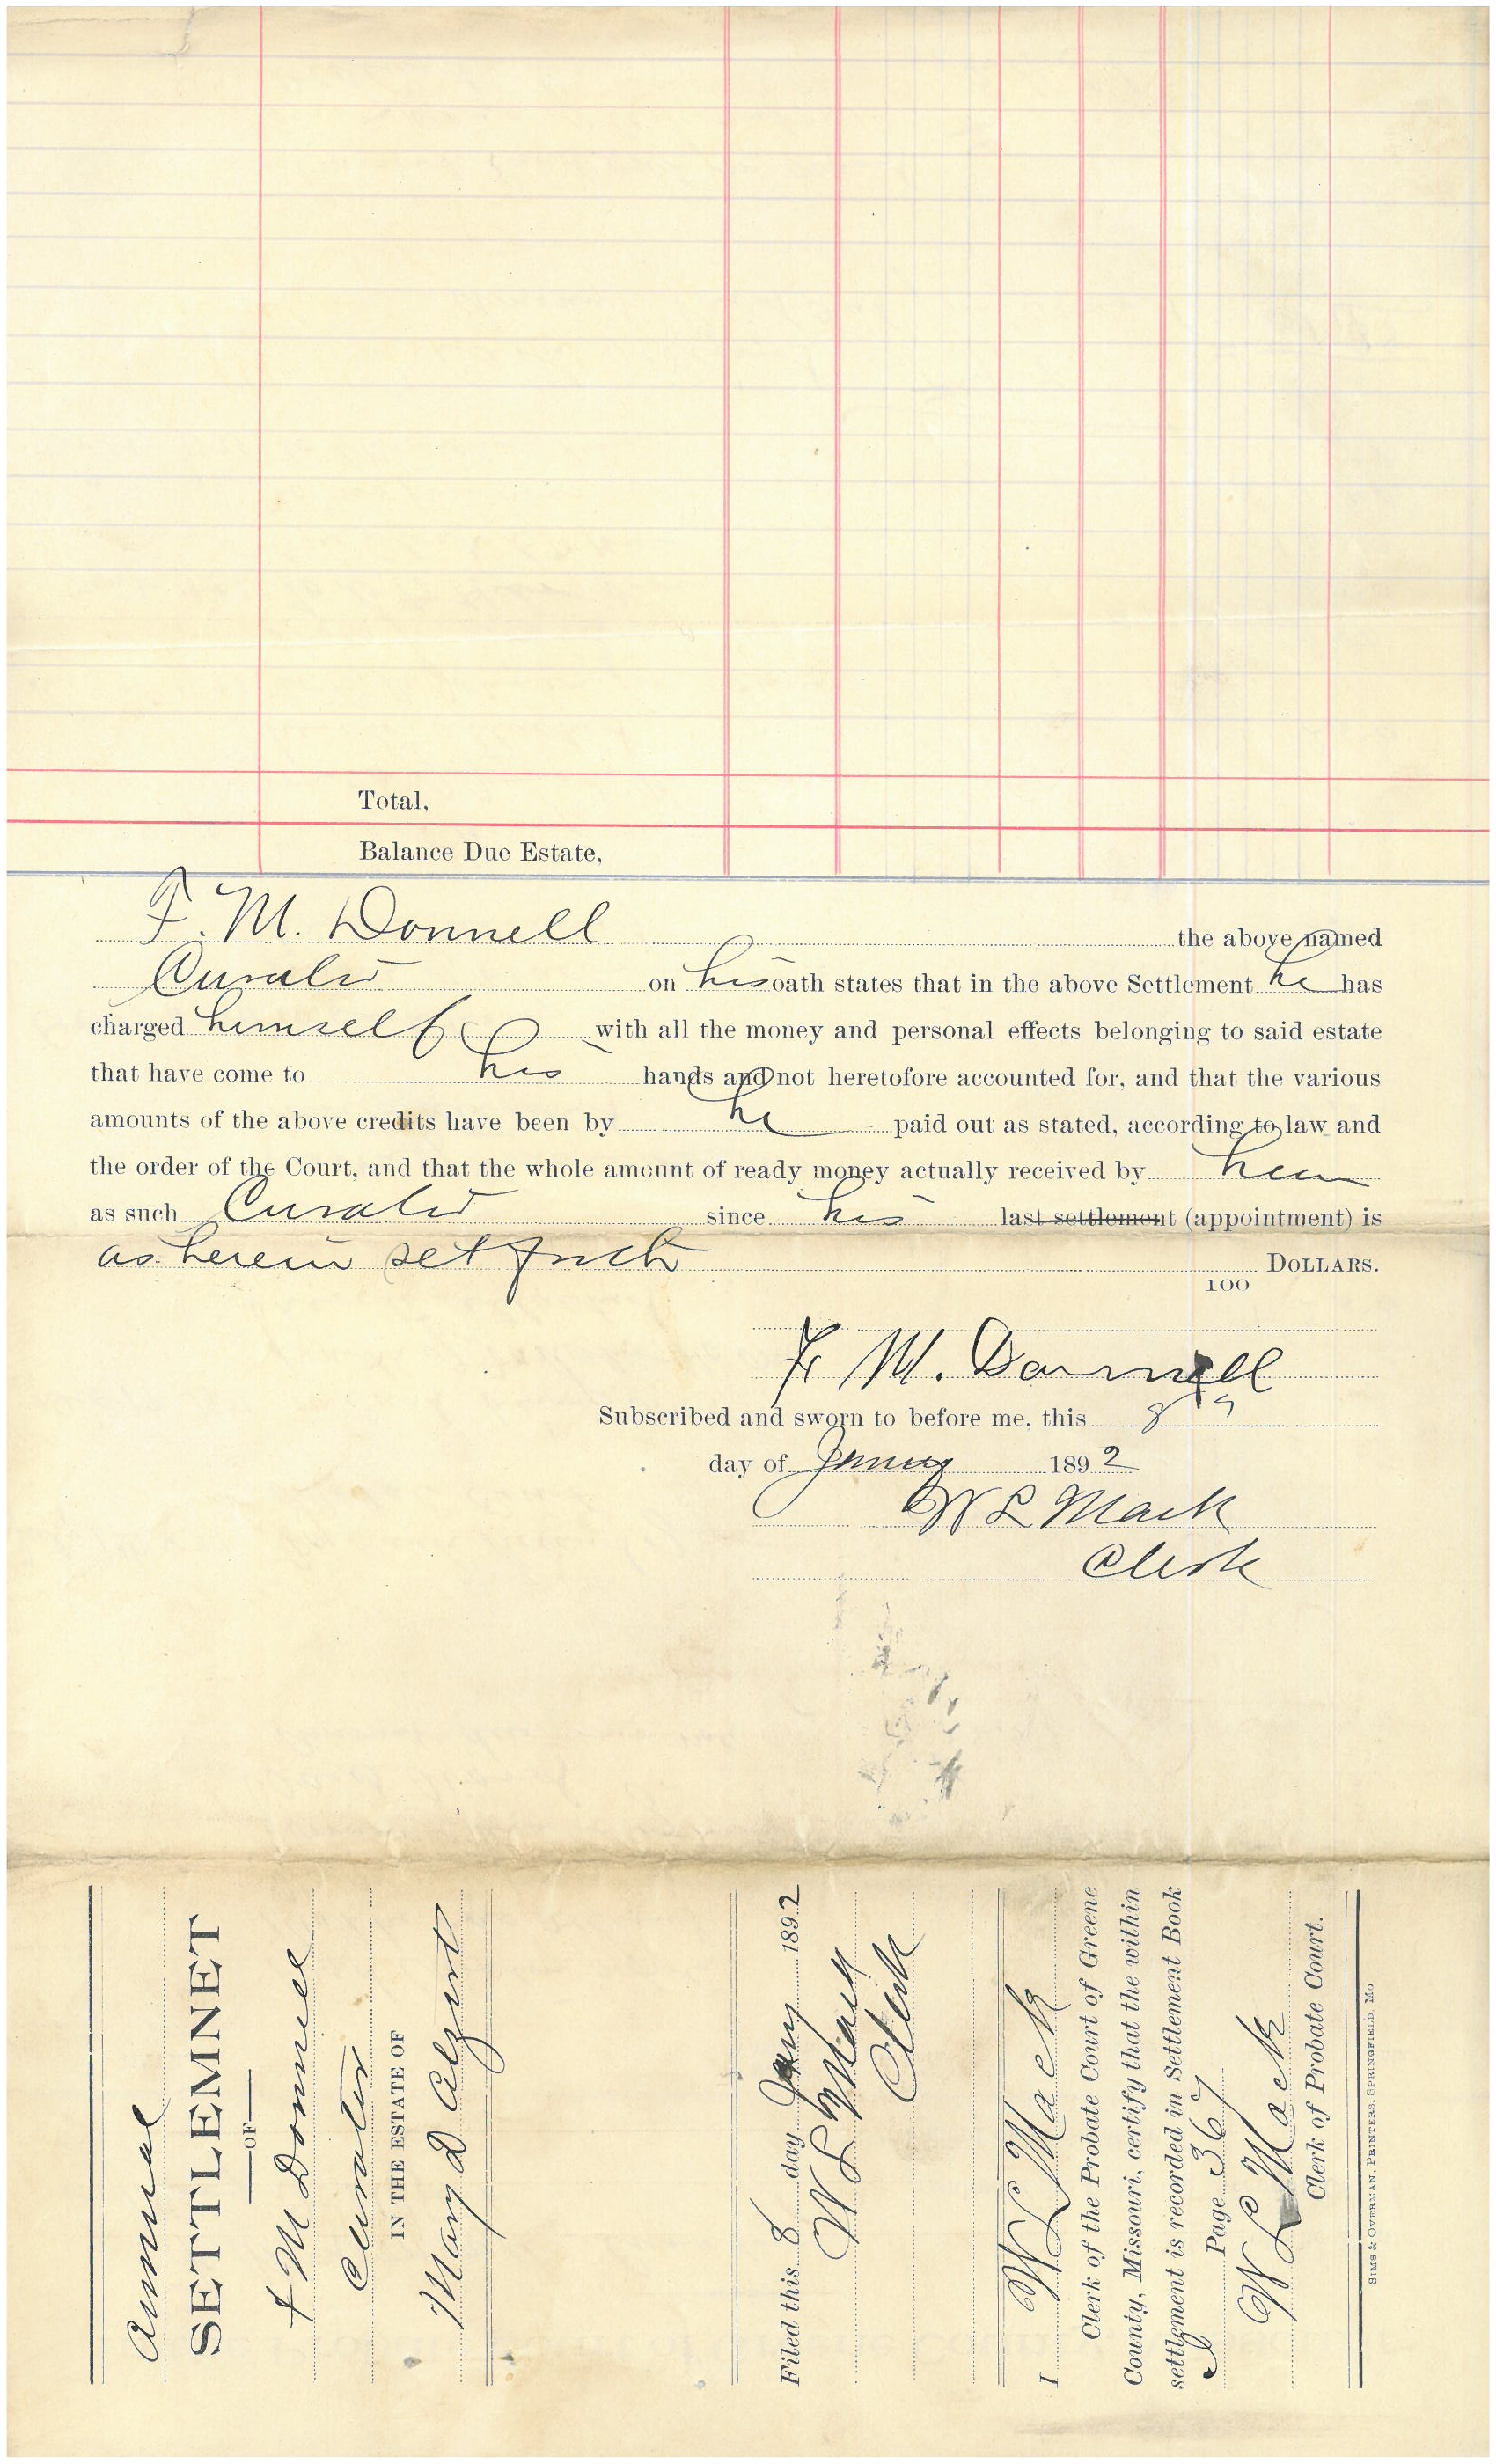 Total,
Balance Due Estate,
F. M. Donnell the above named
Curator on his oath states that in the above Settlement he has
charged himself with all the money and personal effects belonging to said estate
that have come to his hands and not heretofore accounted for, and that the various
amounts of the above credits have been by he paid out as stated, according to law and
the order of the Court, and that the whole amount of ready money actually received by him
as such Curator since his last settlement (appointment) is
as herein set forth DOLLARS.
100
F. M. Donnell
Subscribed and sworn to before me, this 8
day of January 1892
W L Mack
Clerk
Annual
SETTLEMNET
OF
F M Donnell
Curator
IN THE ESTATE OF
Mary D
Filed this 8 day Jany 1892
W L Mack
Clerk
I W L Mack
Clerk of the Probate Court of Greene
County, Missouri, certify that the within
settlement is recorded in Settlement Book
Page 367
W L Mack
Clerk of Probate Court.
SIMS & OVERMAN, PRINTERS, SPRINGFIELD, MO